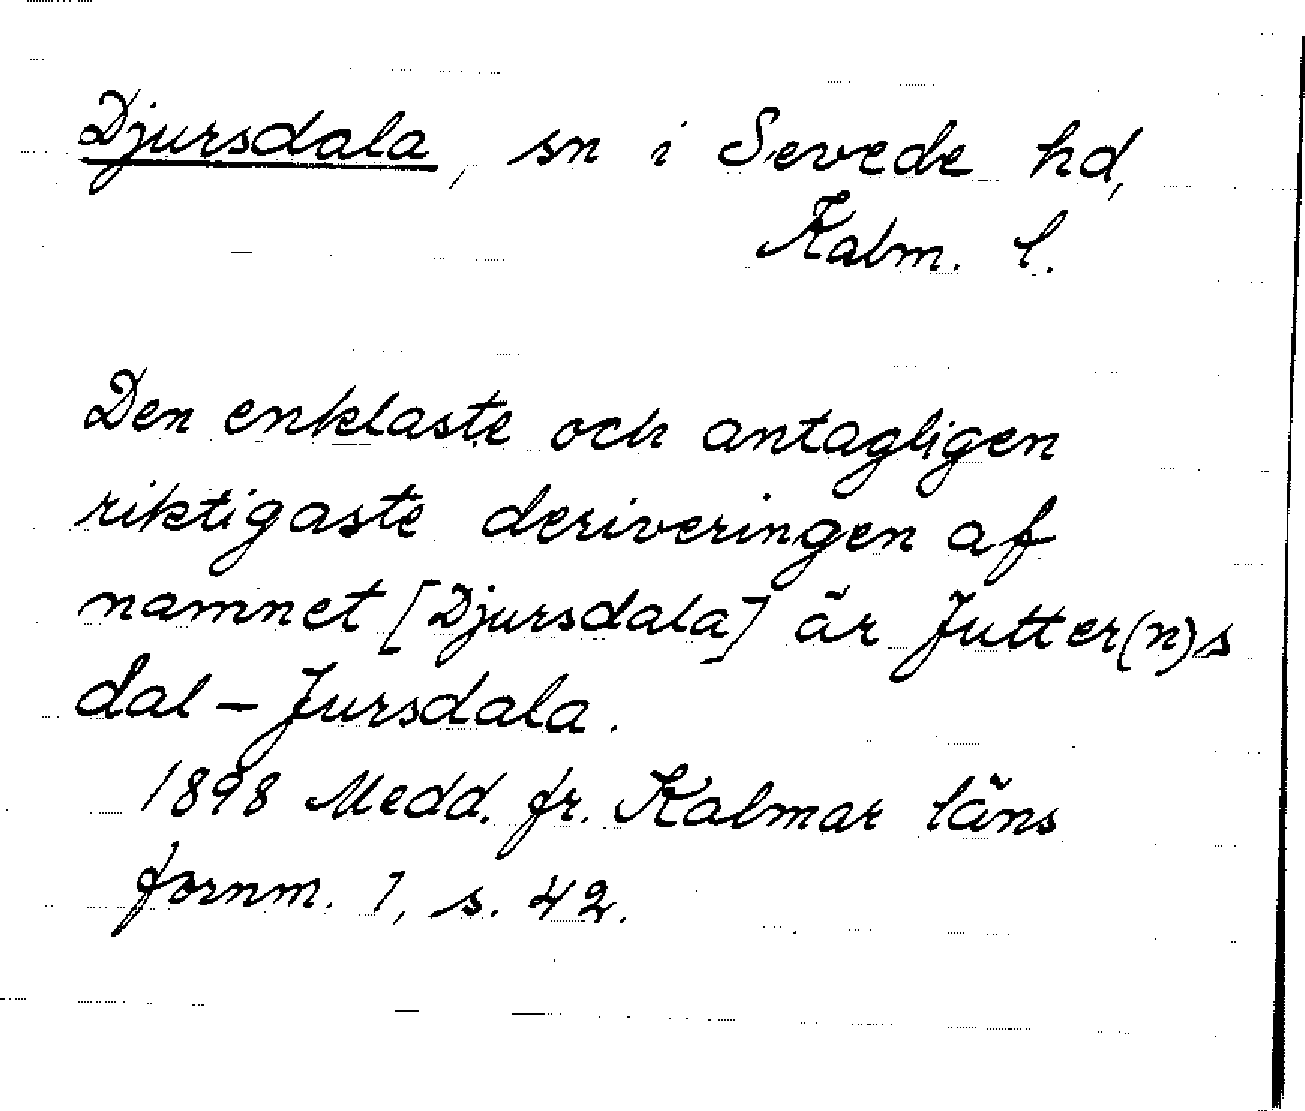 Djursdala, sn i Sevede hd,
Kalm. l.
Den enklaste och antagligen
riktigaste deriveringen af
namnet [Djursdala] är Jutter(n)s
dal - Jursdala.
1898 Medd. fr. Kalmar läns
fornm. 1, s. 42.